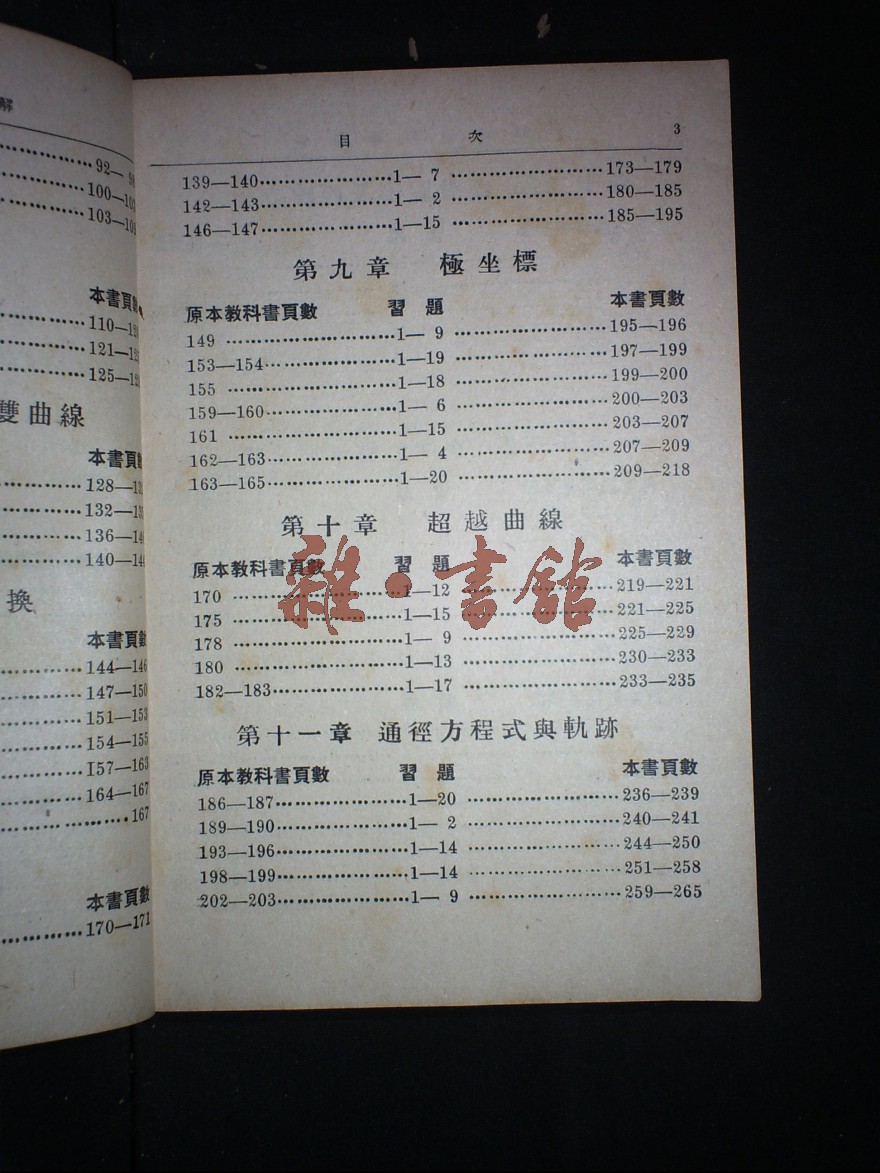 解
92—
100—
103—
本書頁
110—
121—
125—
雙曲線
本書頁
128—
132—
136—
140—
換
本書頁數
144—146
147—150
151—153
154—155
157—163
164—167
167
本書頁數
170—171
目 次 3
139—140……………………1— 7 ……………………173—179
142—143……………………1— 2 ……………………180—185
146—147……………………1—15 ……………………185—195
第九章 極坐標
原本教科書頁數 習題 本書頁數
149 ……………………1— 9 ……………………195—196
153—154……………………1—19 ……………………197—199
155 ……………………1—18 ……………………199—200
159—160……………………1— 6 ……………………200—203
161 ……………………1—15 ……………………203—207
162—163……………………1— 4 ……………………207—209
163—165……………………1—20 ……………………209—218
第十章 超越曲線
原本教科書頁數 習題 本書頁數
170 ……………………1—12 ……………………219—221
175 ……………………1—15 ……………………221—225
178 ……………………1— 9 ……………………225—229
180 ……………………1—13 ……………………230—233
182—183……………………1—17 ……………………233—235
雜·書館
第十一章 通徑方程式與軌跡
原本教科書頁數 習題 本書頁數
186—187……………………1—20 ……………………236—239
189—190……………………1— 2 ……………………240—241
193—196……………………1—14 ……………………244—250
198—199……………………1—14 ……………………251—258
202—203……………………1— 9 ……………………259—265